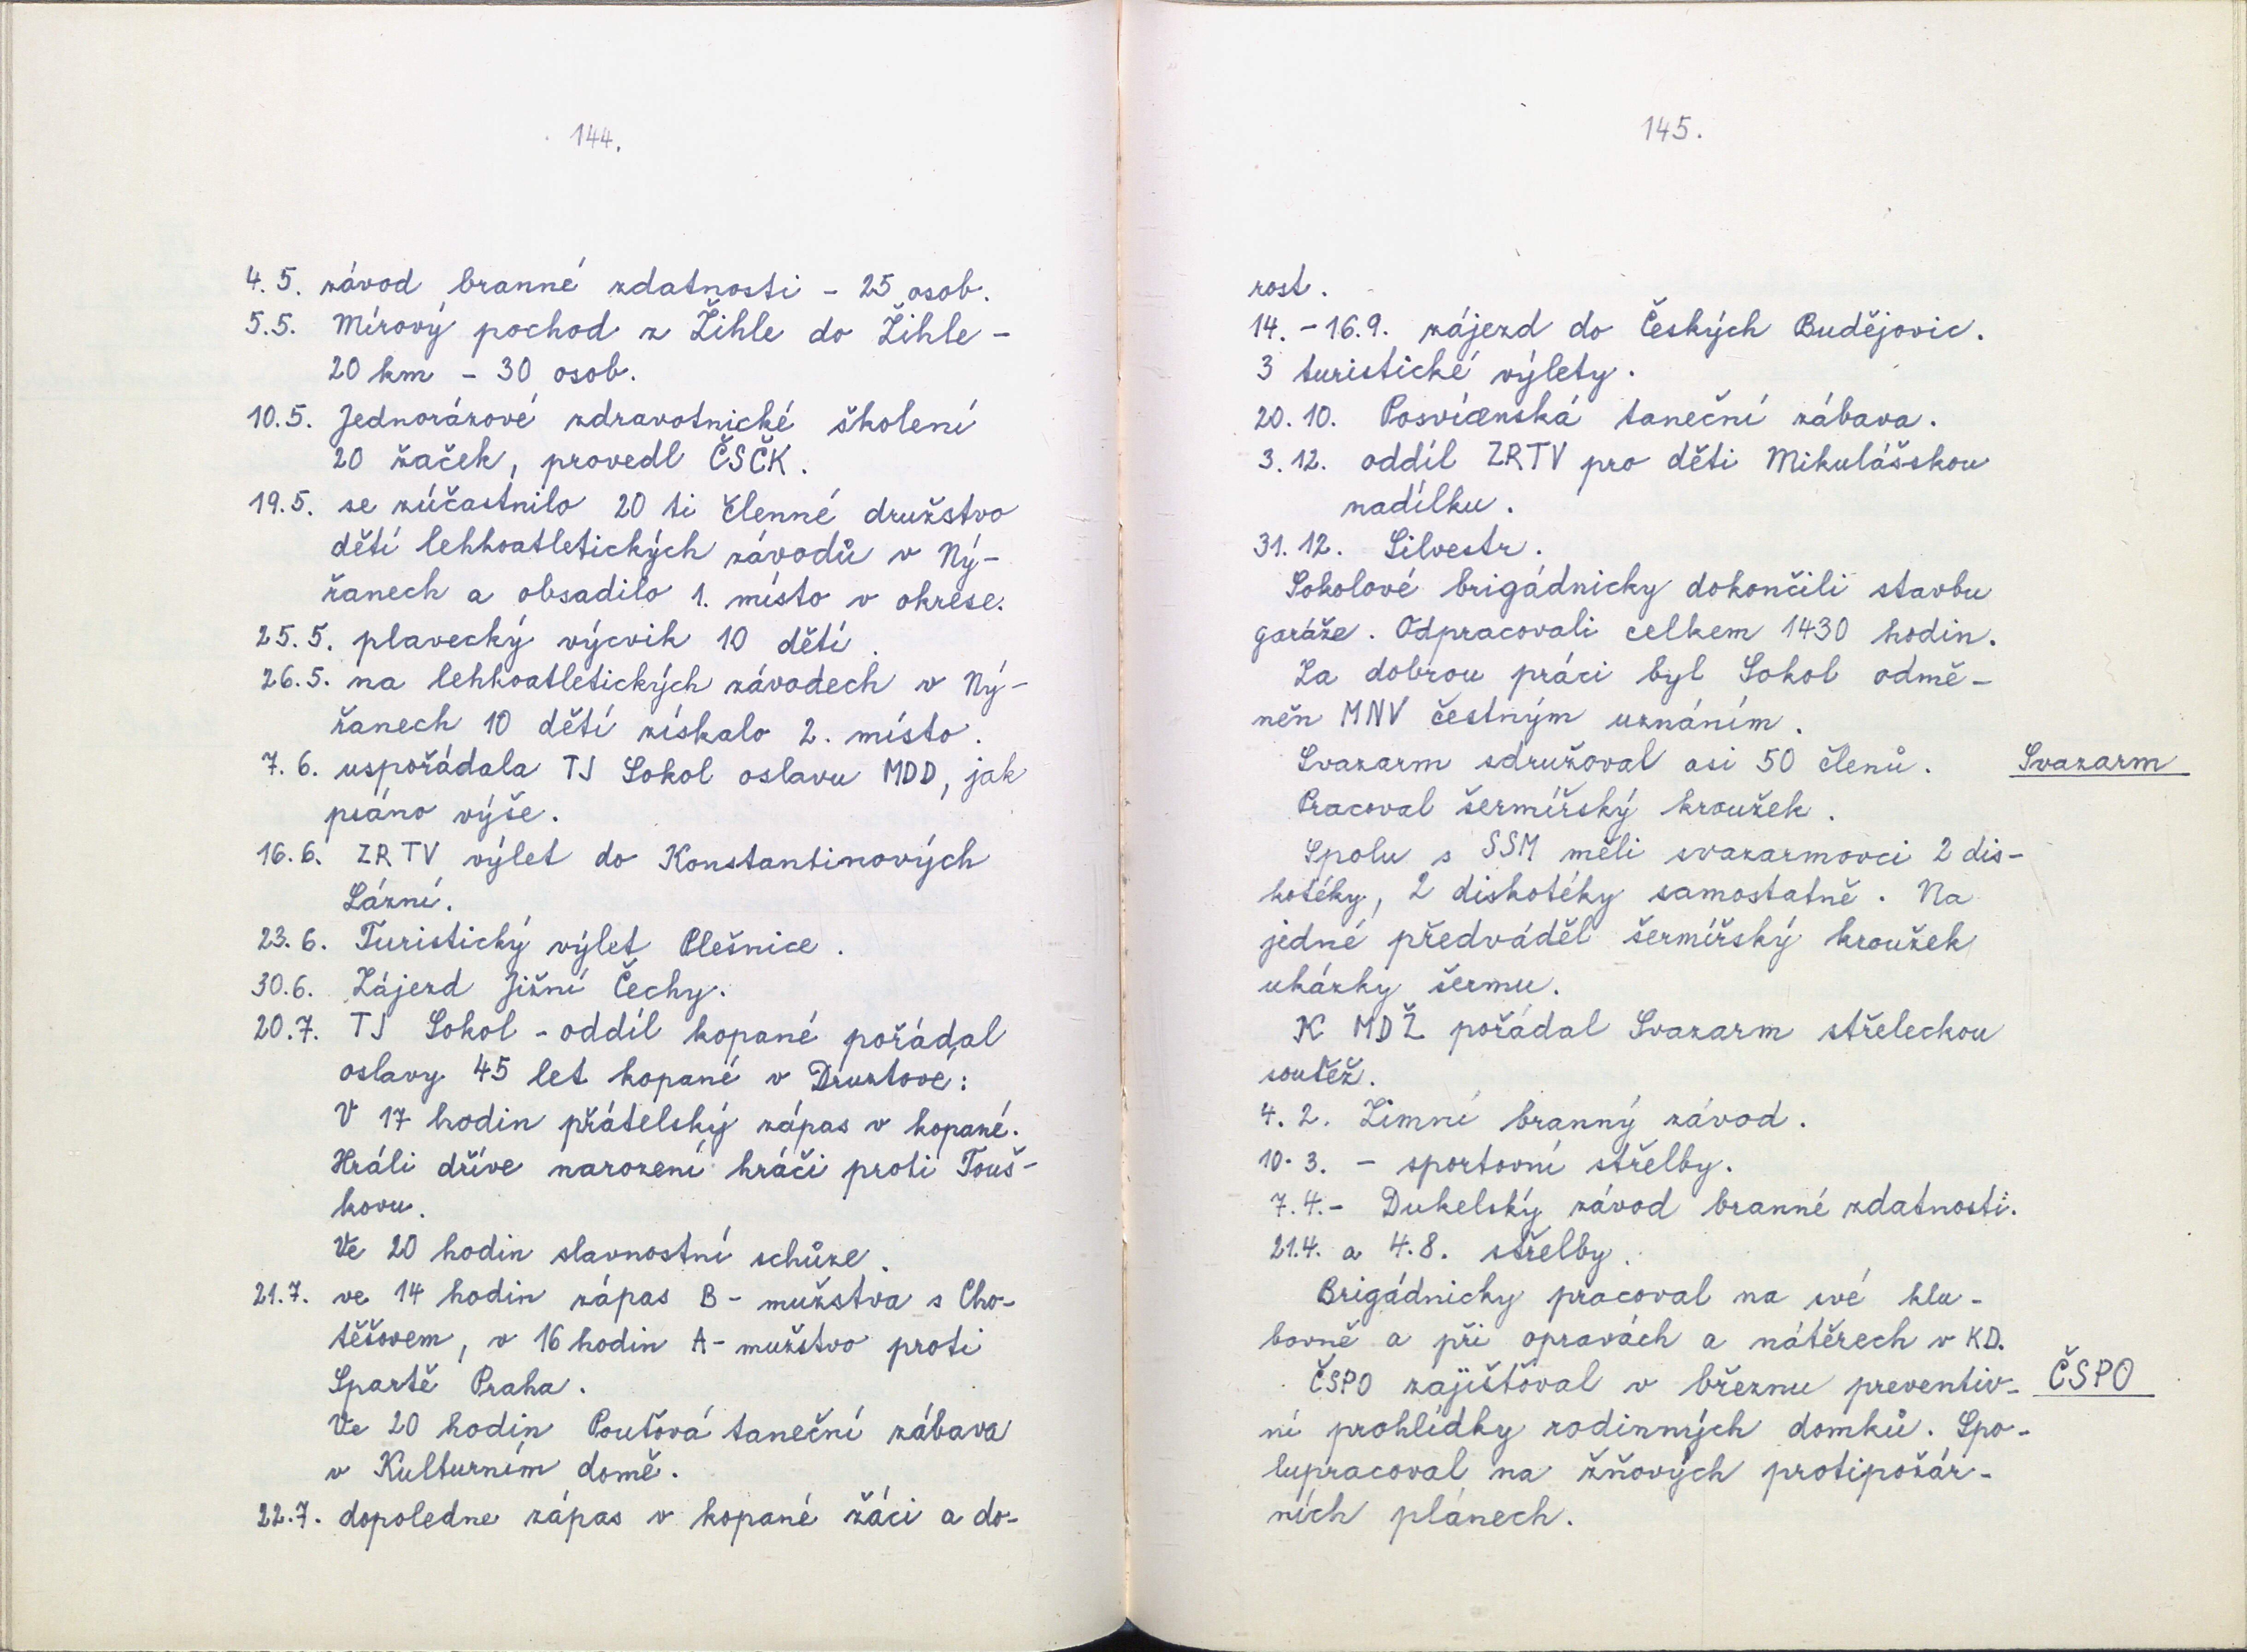 144.
4. 5. závod branné zdatnosti - 25 osob.
5.5. Mírový pochod z Žihle do Žihle -
20 km - 30 osob.
10.5. Jednorázové zdravotnické školení
20 žaček, provedl ČSČK.
19.5. se zúčastnilo 20 ti členné družstvo
dětí lehkoatletických závodů v Ný-
řanech a obsadilo 1. místo v okrese.
25.5. plavecký výcvik 10 dětí.
26.5. na lehkoatletických závodech v Ný-
řanech 10 dětí získalo 2. místo.
7. 6. uspořádala TJ Sokol oslavu MDD, jak
psáno výše.
16.6. ZRTV výlet do Konstantinových
Lázní.
23.6. Turistický výlet Plešnice.
30.6. Zájezd Jižní Čechy.
20.7. TJ Sokol - oddíl kopané pořádal
oslavy 45 let kopané v Druztové:
V 17 hodin přátelský zápas v kopané.
Hráli dříve narození hráči proti Touš-
kovu.
Ve 20 hodin slavnostní schůze.
21.7. ve 14 hodin zápas B - mužstva s Cho-
těšovem, v 16 hodin A - mužstvo proti
Spartě Praha.
Ve 20 hodin Pouťová taneční zábava
v Kulturním domě.
22.7. dopoledne zápas v kopané žáci a do-
145.
rost.
14. - 16.9. zájezd do Českých Budějovic.
3 turistické výlety.
20. 10. Posvícenská taneční zábava.
3. 12. oddíl ZRTV pro děti Mikulášskou
nadílku.
31. 12. Silvestr.
Sokolové brigádnicky dokončili stavbu
garáže. Odpracovali celkem 1430 hodin.
Za dobrou práci byl Sokol odmě-
něn MNV čestným uznáním.
Svazarm sdružoval asi 50 členů.
Svazarm
Pracoval šermířský kroužek.
Spolu s SSM měli svazarmovci 2 dis-
kotéky, 2 diskotéky samostatně. Na
jedné předváděl šermířský kroužek
ukázky šermu.
K MDŽ pořádal Svazarm střeleckou
soutěž.
4. 2. Zimní branný závod.
10. 3. - sportovní střelby.
7. 4. - Dukelský závod branné zdatnosti.
21.4. a 4.8. střelby.
Brigádnicky pracoval na své klu-
bovně a při opravách a nátěrech v KD.
ČSPO zajišťoval v březnu preventiv-
ČSPO
ní prohlídky rodinných domků. Spo-
lupracoval na žňových protipožár-
ních plánech.